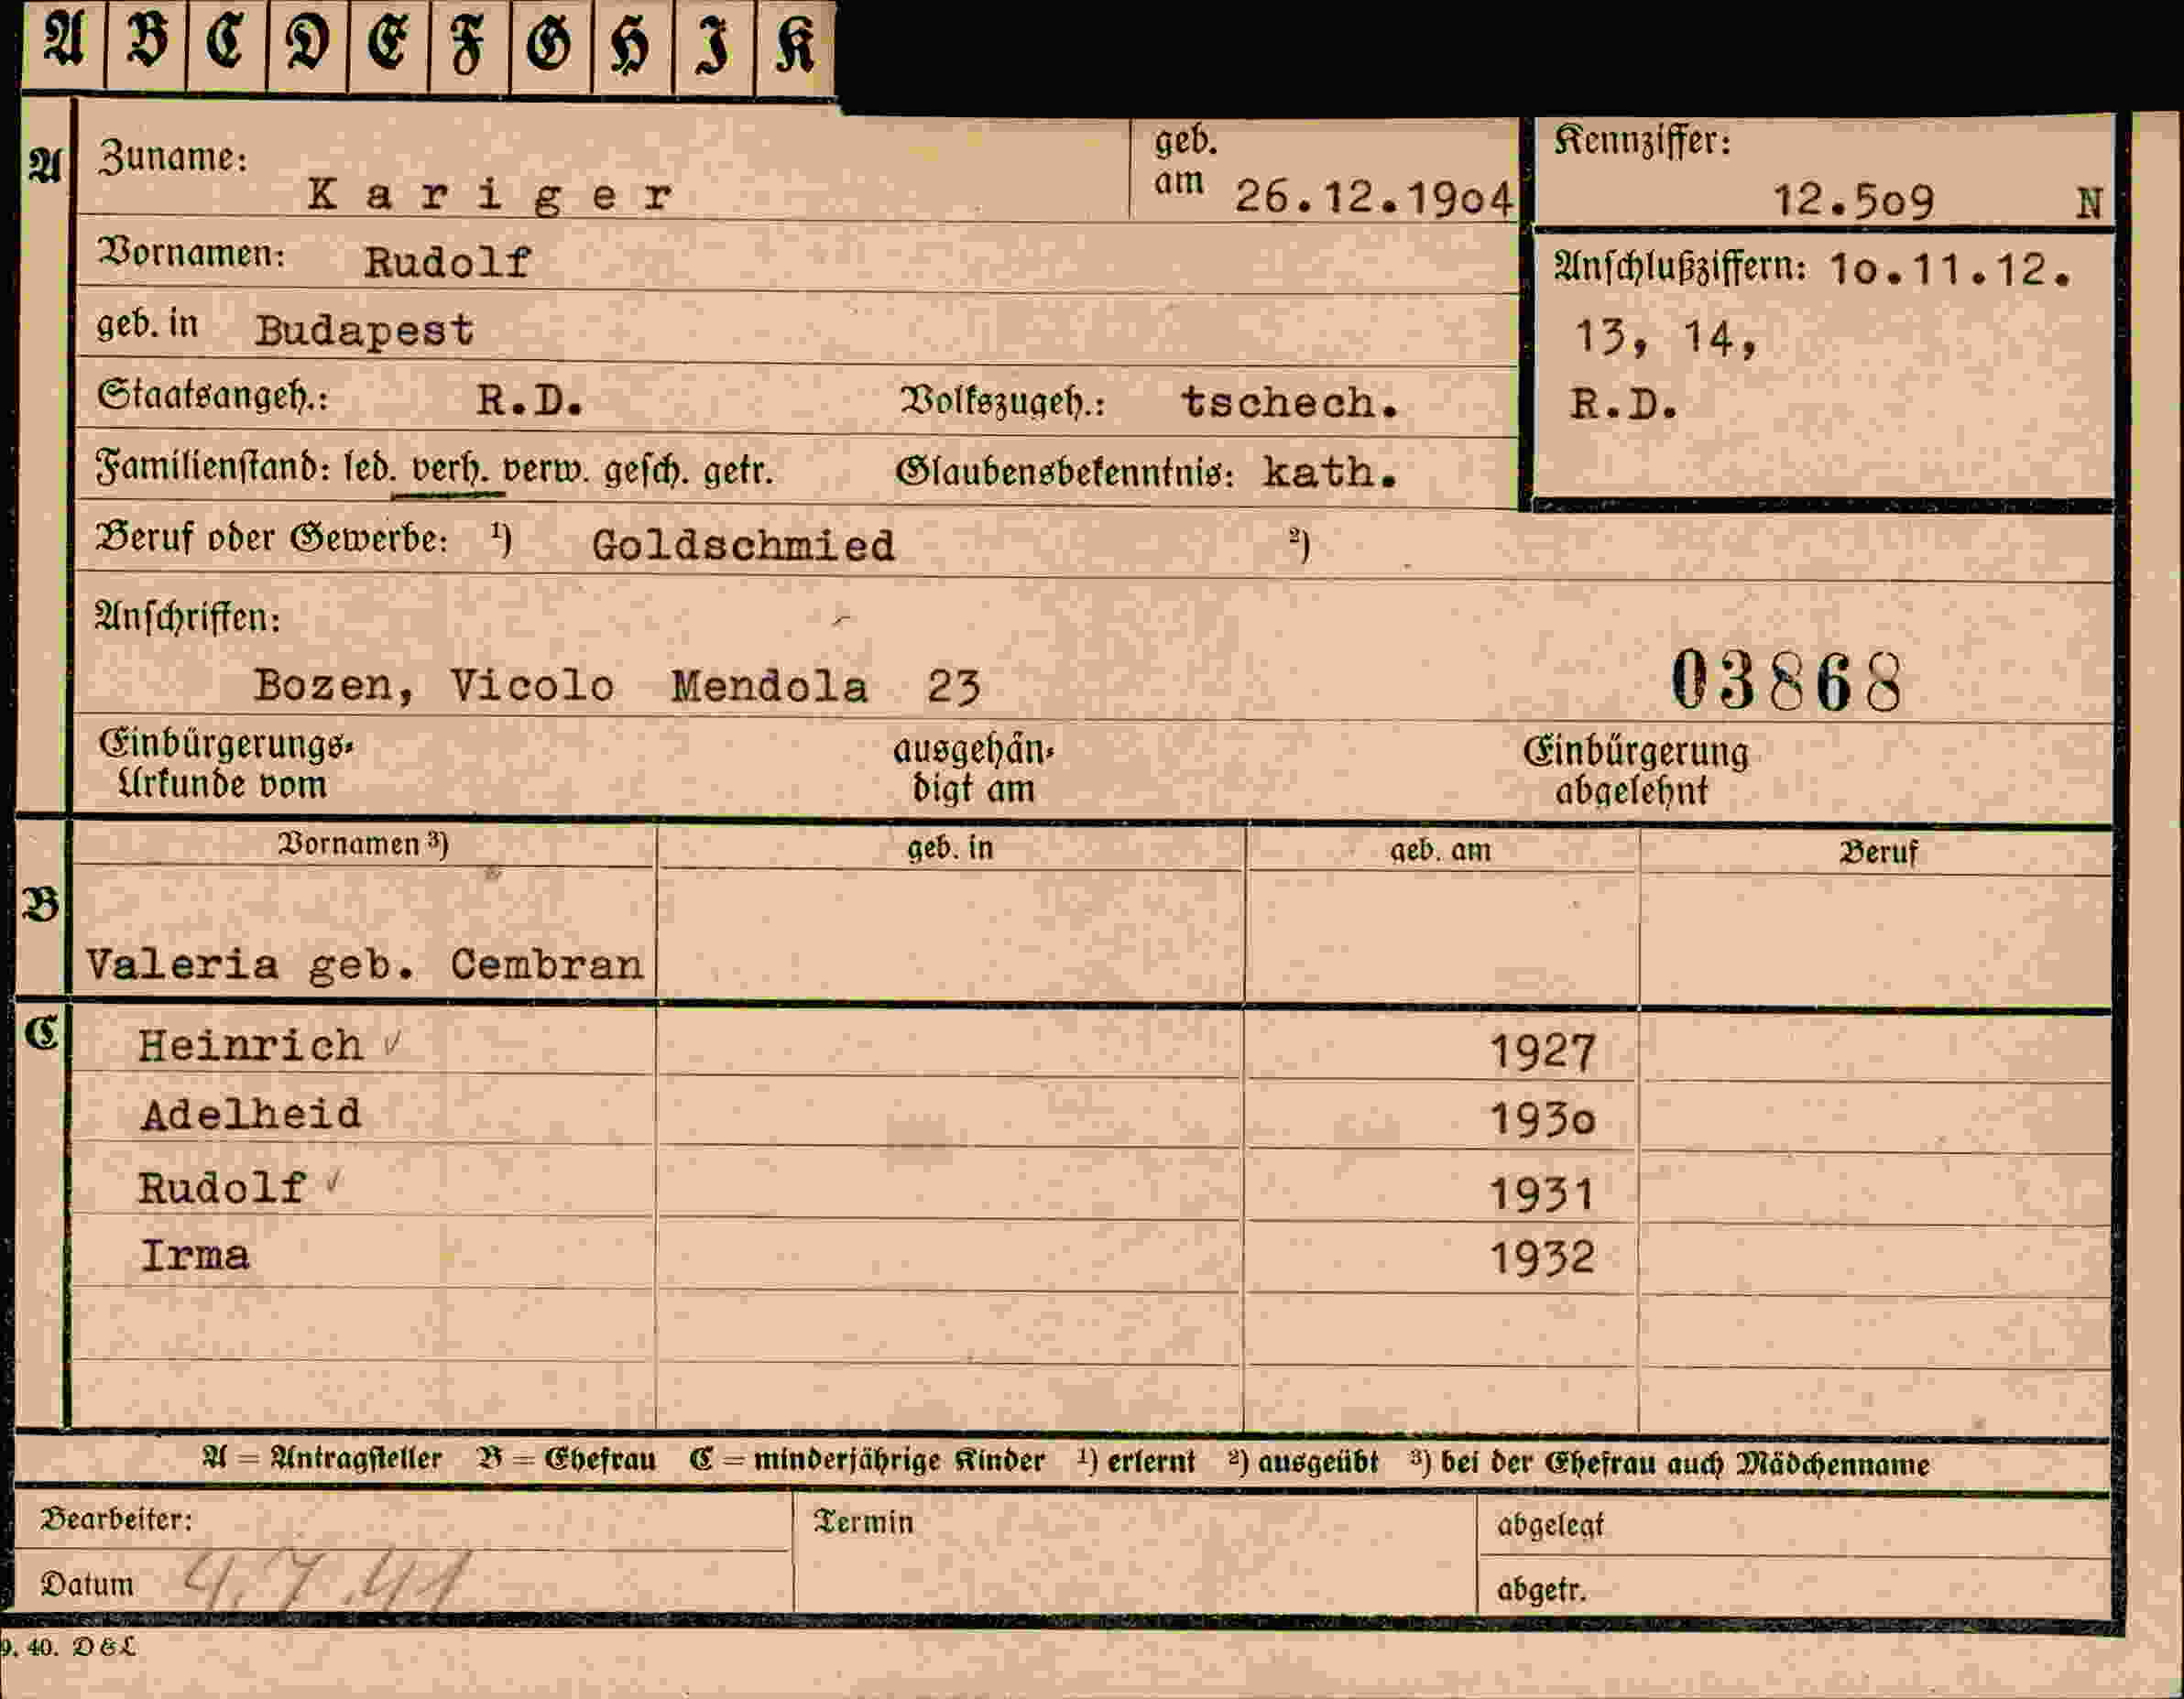 A B C D E F G H I K
A Zuname: Kariger geb. am 26.12.19o4 Kennziffer: 12.5o9 N
Vornamen: Rudolf Anschlußziffern: 1o.11.12.
geb. in Budapest 13, 14,
Staatsangeh.: R.D. Volkszugeh.: tschech. R.D.
Familienstand: led. verh. verw. gesch. getr. Glaubensbekenntnis: kath.
Beruf oder Gewerbe: ¹) Goldschmied ²)
Anschriften:
Bozen, Vicolo Mendola 23 03868
Einbürgerungs- ausgehän- Einbürgerung
Urkunde vom digt am abgelehnt
Vornamen ³) geb. in geb. am Beruf
B
Valeria geb. Cembran
C Heinrich ✓ 1927
Adelheid 193o
Rudolf ✓ 1931
Irma 1932
A = Antragsteller B = Ehefrau C = minderjährige Kinder ¹) erlernt ²) ausgeübt ³) bei der Ehefrau auch Mädchenname
Bearbeiter: Termin abgelegt
Datum 4.7.41 abgetr.
9. 40. D&L